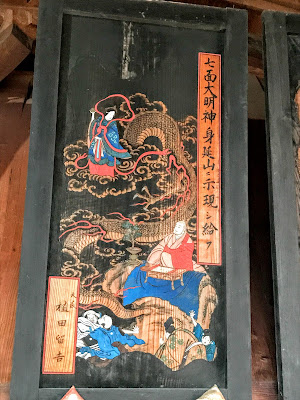 七面大明神身延山ニ示現シ給フ
大阪
植田留吉